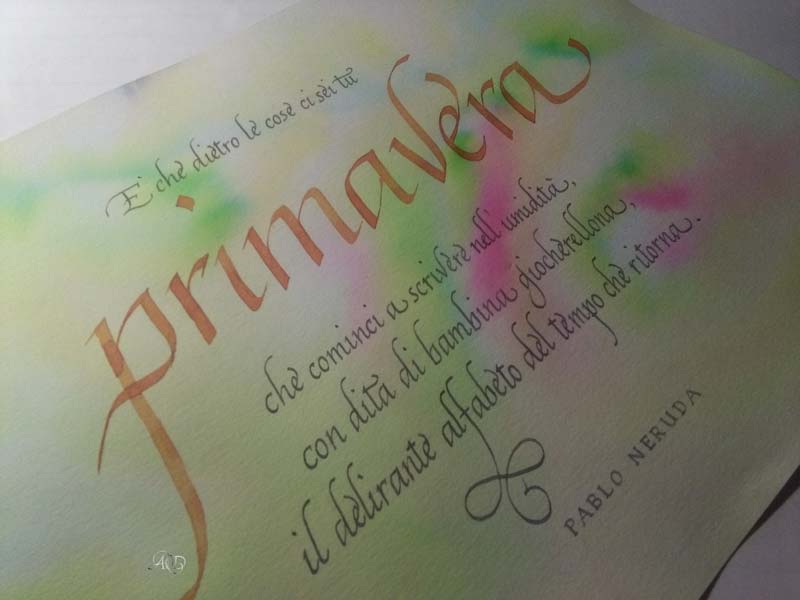 E' che dietro le cose ci sei tu
primavera
che cominci a scrivere nell' umidità,
con dita di bambina giocherellona,
il delirante alfabeto del tempo che ritorna.
PABLO NERUDA